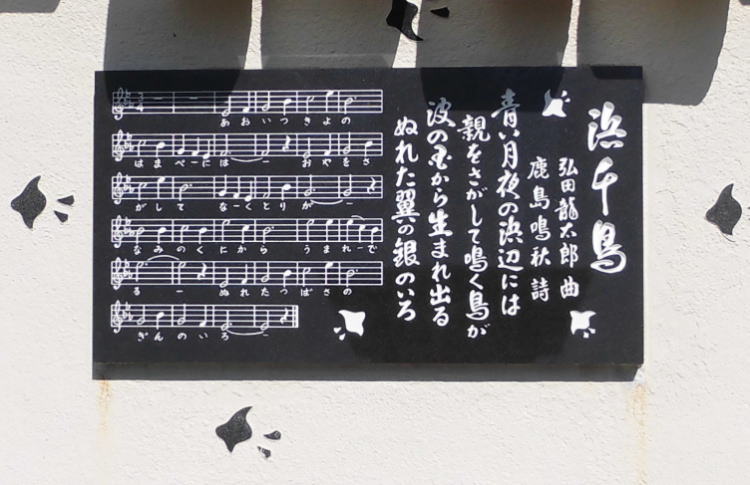 浜千鳥
弘田龍太郎 曲
鹿島鳴秋 詩
青い月夜の浜辺には
親をさがして鳴く鳥が
波の国から生まれ出る
ぬれた翼の銀のいろ
あおいつきよの
はまべーにはー おやをさ
がして なーくとりがー
なみのくにから うまれーで
るー ぬれたつばさの
ぎんのいろー